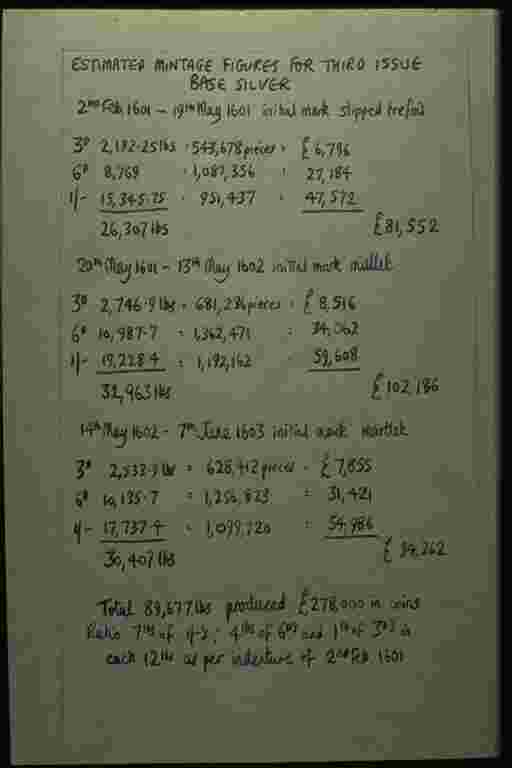 ESTIMATED MINTAGE FIGURES FOR THIRD ISSUE
BASE SILVER
2nd Feb 1601 – 19th May 1601 initial mark slipped trefoil
3d 2,192.25 lbs = 543,678 pieces = £6,796
6d 8,769 = 1,087,356 = 27,184
1/- 15,345.75 = 951,437 = 47,572
26,307 lbs £81,552
20th May 1601 – 13th May 1602 initial mark mullet
3d 2,746.9 lbs = 681,236 pieces = £8,516
6d 10,987.7 = 1,362,471 = 34,062
1/- 19,228.4 = 1,192,162 = 59,608
32,963 lbs £102,186
14th May 1602 – 7th June 1603 initial mark martlet
3d 2,533.9 lbs = 628,412 pieces = £7,855
6d 10,135.7 = 1,256,823 = 31,421
1/- 17,737.4 = 1,099,720 = 54,986
30,407 lbs £94,262
Total 89,677 lbs produced £278,000 in coins
Ratio 7lbs of 1/-s; 4lbs of 6ds and 1lb of 3ds in
each 12lbs as per indenture of 2nd Feb 1601